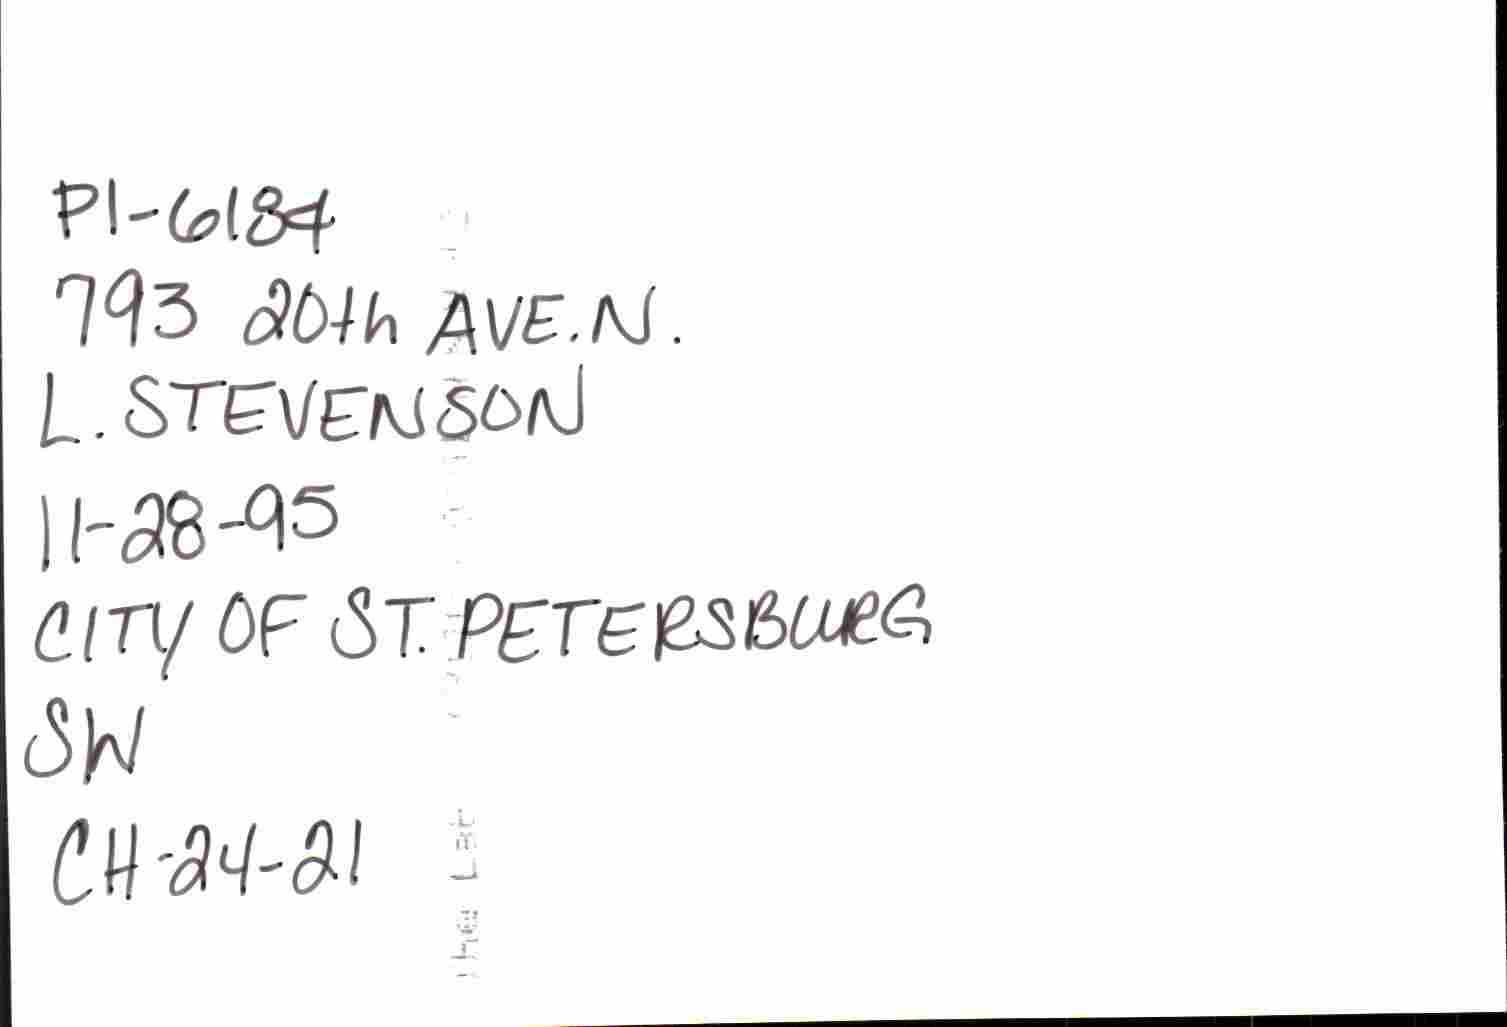 PI-6184
793 20th AVE. N.
L. STEVENSON
11-28-95
CITY OF ST. PETERSBURG
SW
CH-24-21